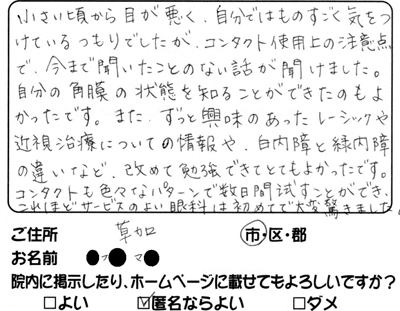 小さい頃から目が悪く、自分ではものすごく気をつ
けているつもりでしたが、コンタクト使用上の注意点
で、今まで聞いたことのない話が聞けました。
自分の角膜の状態を知ることができたのもよ
かったです。また、ずっと興味のあったレーシックや
近視治療についての情報や、白内障と緑内障
の違いなど、改めて勉強できてとてもよかったです。
コンタクトも色々なパターンで数日間試すことができ、
これほどサービスのよい眼科は初めてで大変驚きました。
ご住所 草加 市・区・郡
お名前 ●フ●マ●
院内に掲示したり、ホームページに載せてもよろしいですか?
□よい ☑匿名ならよい □ダメ